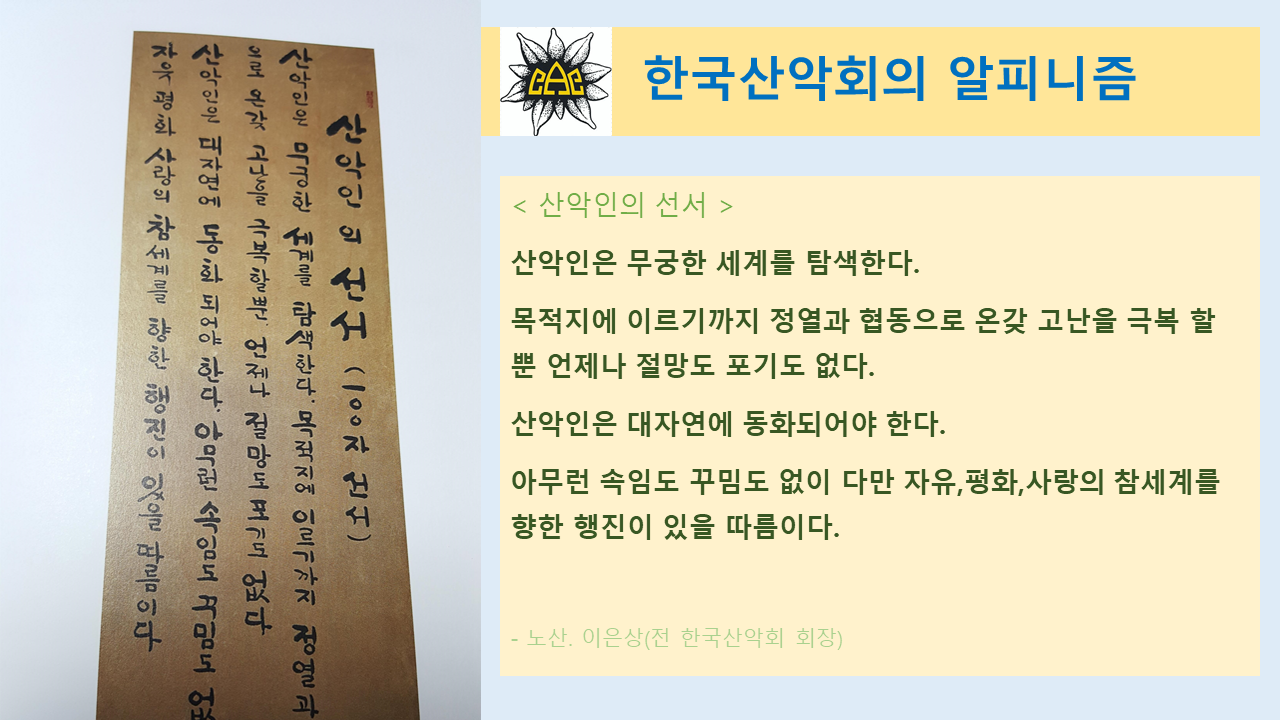 산악인의 선서 (一００자 선서)
산악인은 무궁한 세계를 탐색한다. 목적지에 이르기까지 정열과
으로 온갖 고난을 극복할뿐. 언제나 절망도 포기도 없다
산악인은 대자연에 동화되어야 한다. 아무런 속임도 꾸밈도 없
자유 평화 사랑의 참세계를 향한 행진이 있을 따름이다
CAC
한국산악회의 알피니즘
< 산악인의 선서 >
산악인은 무궁한 세계를 탐색한다.
목적지에 이르기까지 정열과 협동으로 온갖 고난을 극복 할
뿐 언제나 절망도 포기도 없다.
산악인은 대자연에 동화되어야 한다.
아무런 속임도 꾸밈도 없이 다만 자유,평화,사랑의 참세계를
향한 행진이 있을 따름이다.
- 노산. 이은상(전 한국산악회 회장)